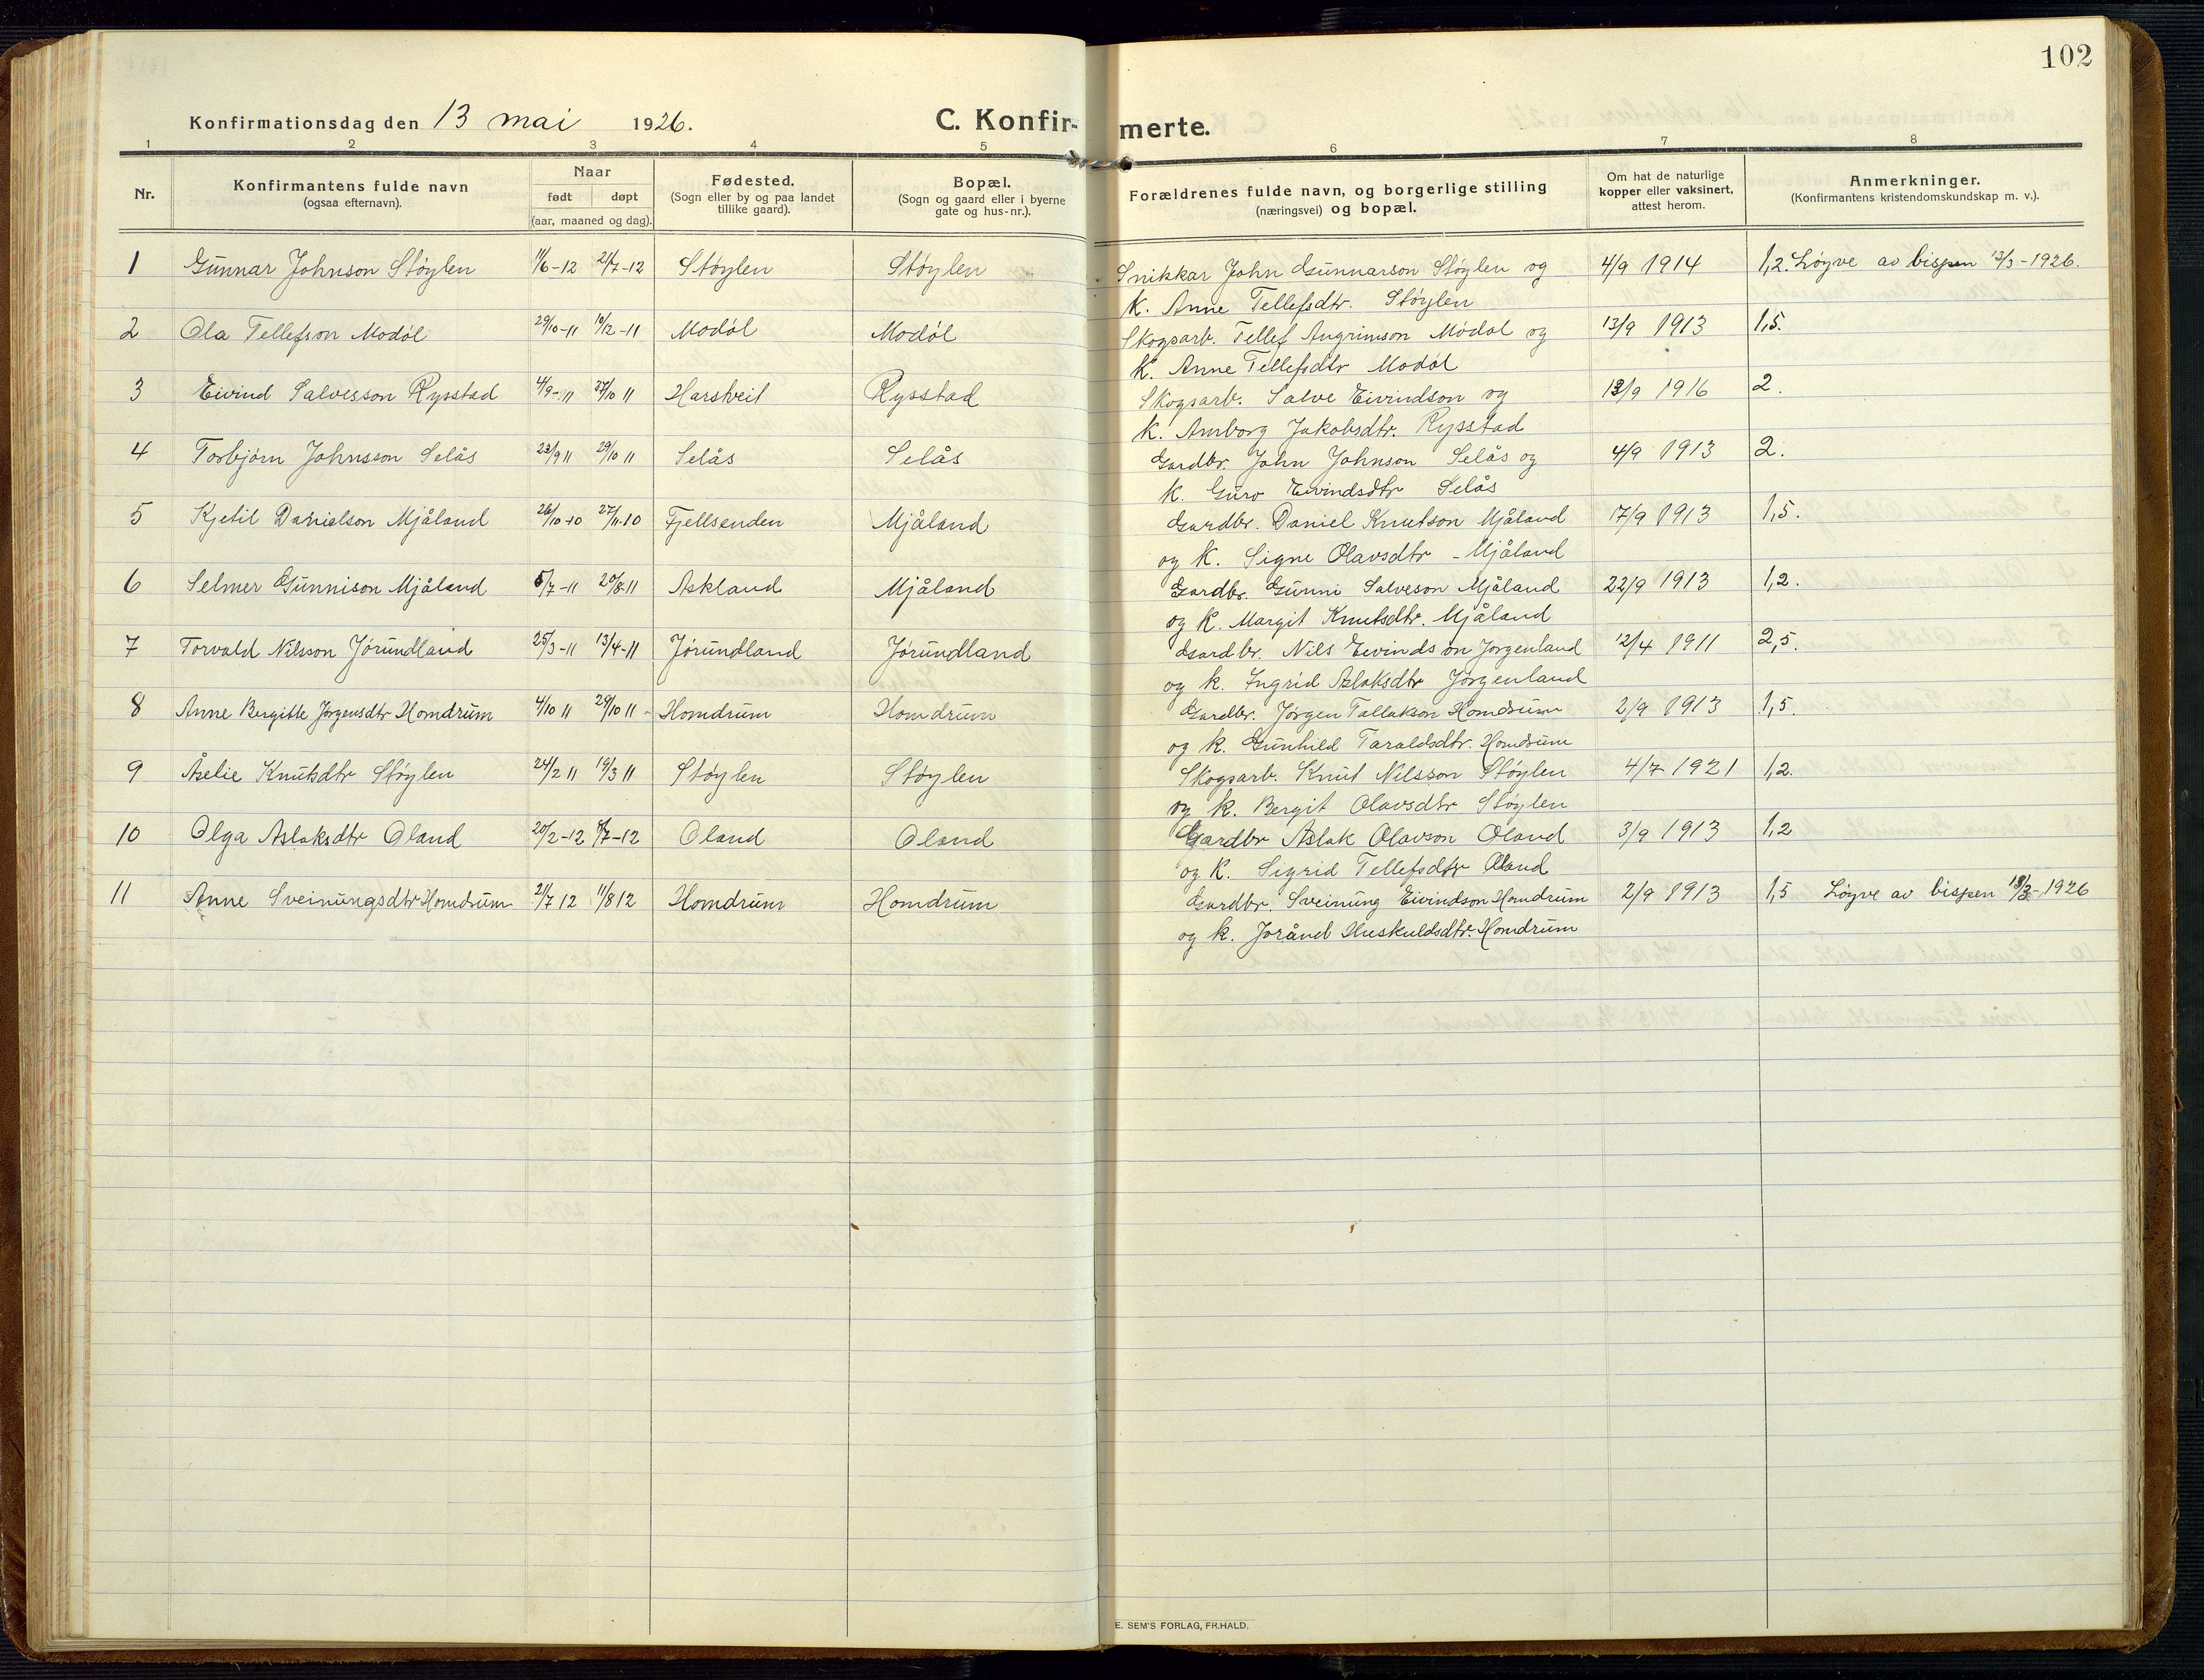 102
Konfirmationsdag den 13 mai 1926.
C. Konfirmerte.
1 2 3 4 5 6 7 8
Nr. Konfirmantens fulde navn (ogsaa efternavn). Naar født døpt (aar, maaned og dag). Fødested. (Sogn eller by og paa landet tillike gaard). Bopæl. (Sogn og gaard eller i byerne gate og hus-nr.). Forældrenes fulde navn, og borgerlige stilling (næringsvei) og bopæl. Om hat de naturlige kopper eller vaksinert, attest herom. Anmerkninger. (Konfirmantens kristendomskundskap m. v.).
1 Gunnar Johnson Støylen 11/6-12 21/7-12 Støylen Støylen Snikkar John Gunnarson Støylen og 4/9 1914 1,2. Løyve av bispen 1926.
K. Anne Tellefsdtr. Støylen
2 Ola Tellefson Modøl 29/10-11 10/12-11 Modøl Modøl Skogsarb. Tellef Angrimson Modøl og 13/9 1913 1,5.
K. Anne Tellefsdtr Modøl
3 Eivind Salvesson Rysstad 4/9-11 /10 11 Harstveit Rysstad Skogsarb. Salve Eivindson og 13/9 1916 2.
K. Amborg Jakobsdtr. Rysstad
4 Torbjørn Johnsson Selås 23/9 11 29/10 11 Selås Selås Gardbr. John Johnson Selås og 4/9 1913 2.
K. Guro Eivindsdtr Selås
5 Kjetil Danielson Mjåland 26/10-10 27/11-10 Fjellsenden Mjåland Gardbr. Daniel Knutson Mjåland 17/9 1913 1,5.
og K. Signe Olavsdtr - Mjåland
6 Selmer Gunnison Mjåland 5/7-11 20/8-11 Askland Mjåland Gardbr. Gunni Salveson Mjåland 22/9 1913 1,2.
og K. Margit Knutsdtr. Mjåland
7 Torvald Nilsson Jørundland 25/3-11 13/4-11 Jørundland Jørundland Gardbr. Nils Eivindson Jørgenland 12/4 1911 2,5.
og K. Ingrid Aslaksdtr Jørgenland
8 Anne Bergitte Jørgensdtr Homdrum 4/10 11 29/10 11 - Homdrum Homdrum Gardbr. Jørgen Tallakson Homdrum 2/9 1913 1,5.
og K. Gunhild Taraldsdtr. Homdrum
9 Åselie Knutsdtr Støylen 24/2 11 19/3 11 Støylen Støylen Skogsarb. Knut Nilsson Støylen 4/7 1921 1,2.
og K. Bergit Olavsdtr Støylen
10 Olga Aslaksdtr Oland 20/2-12 /7-12 Oland Oland Gardbr Aslak Olavson Oland 3/9 1913 1,2
og K. Sigrid Tellefsdtr Oland
11 Anne Sveinungsdtr Homdrum 21/7 12 11/8 12 Homdrum Homdrum Gardbr. Sveinung Eivindson Homdrum 2/9 1913 1,5 Løyve av bispen 1926
og K. Joránd Huskuldsdtr. Homdrum
E. SEM'S FORLAG, FR.HALD.